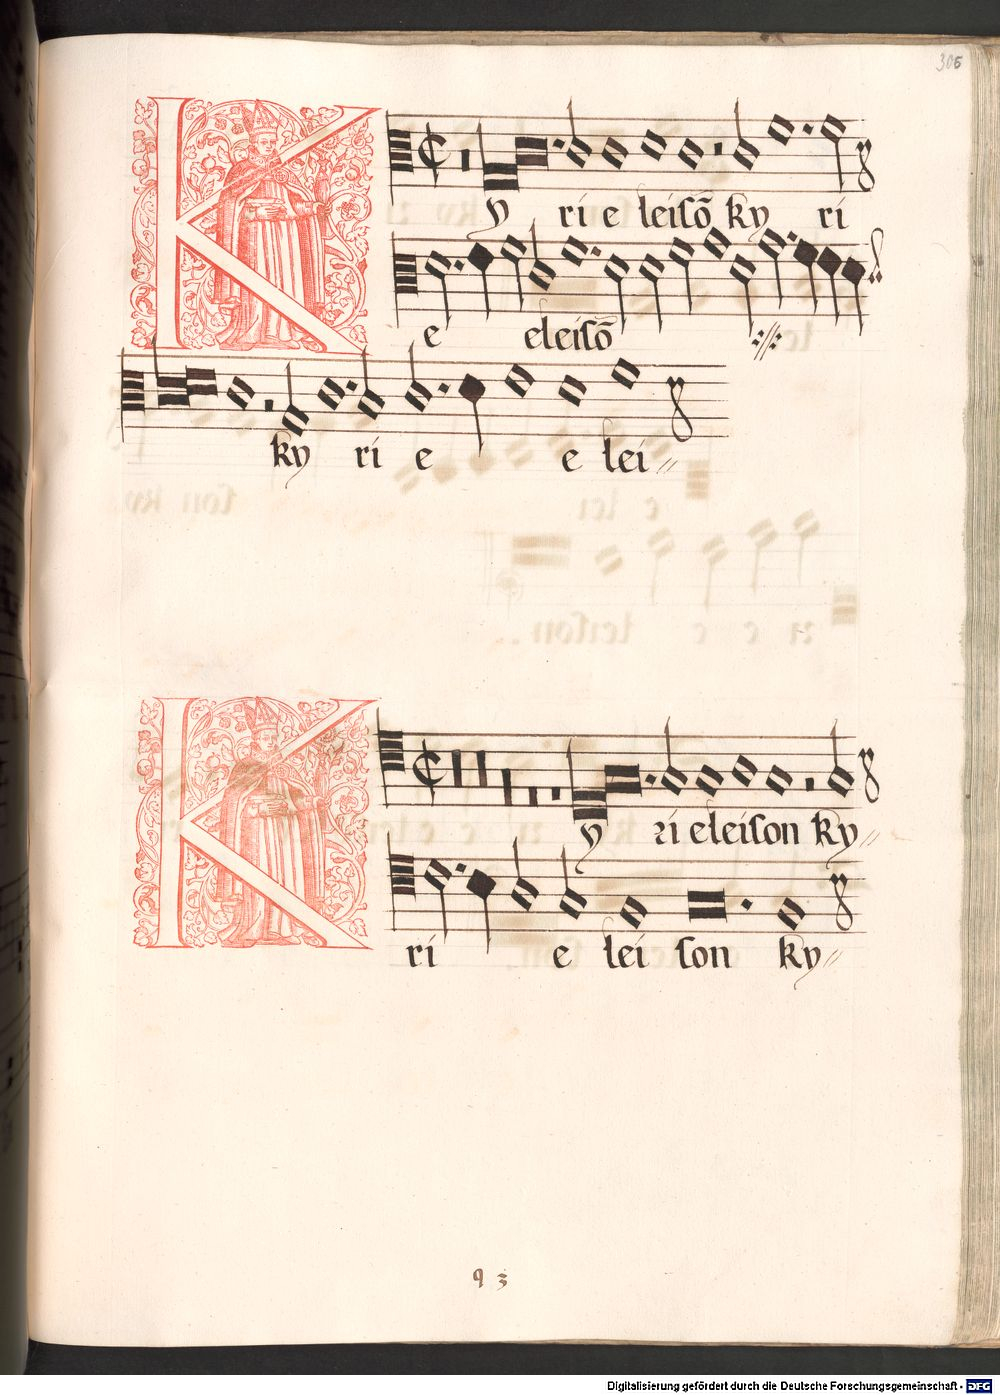 306
Ky ri e leiſō ky ri
e eleiſō
ky ri e e lei
Ky ri e leiſon ky
ri e lei ſon ky
93
Digitalisierung gefördert durch die Deutsche Forschungsgemeinschaft - DFG